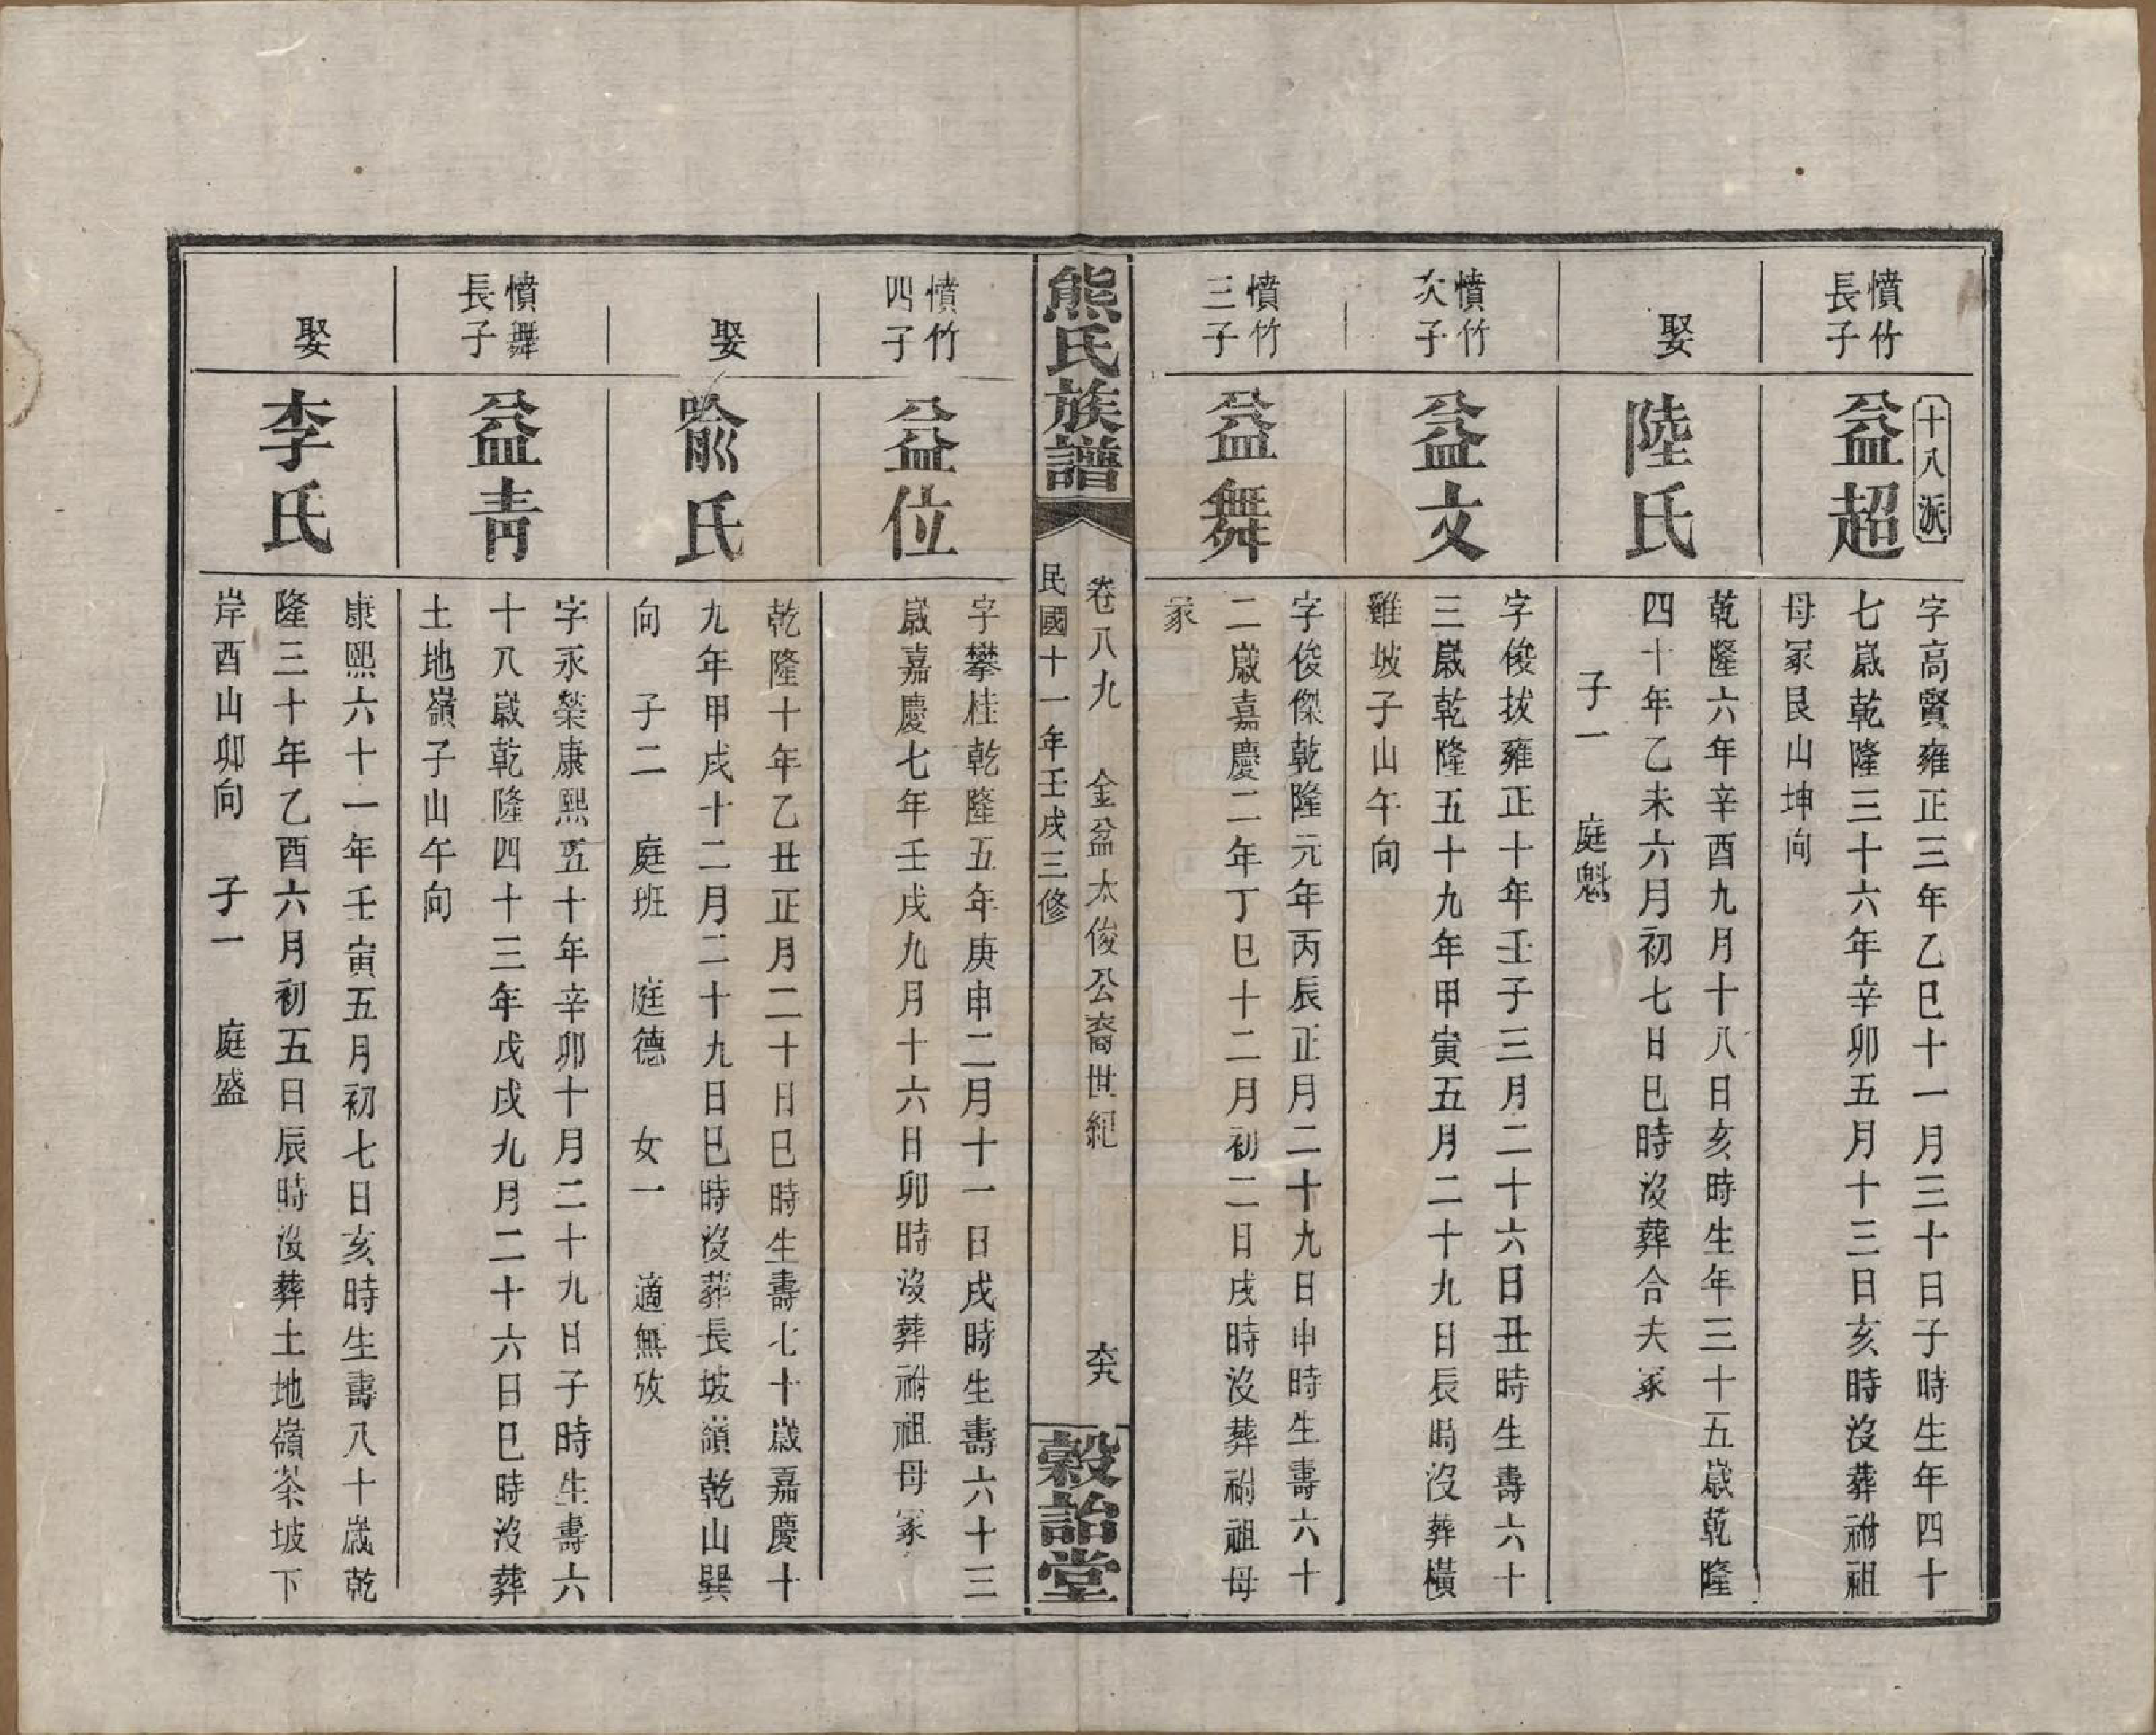 十八派
憤竹
長子
益超
字高賢雍正三年乙巳十一月三十日子時生年四十
七歲乾隆三十六年辛卯五月十三日亥時沒葬祔祖
母冢艮山坤向
娶
陸氏
乾隆六年辛酉九月十八日亥時生年三十五歲乾隆
四十年乙未六月初七日巳時沒葬合夫冢
子一　庭魁
憤竹
次子
益文
字俊拔雍正十年壬子三月二十六日丑時生壽六十
三歲乾隆五十九年甲寅五月二十九日辰時沒葬橫
雞坡子山午向
憤竹
三子
益舞
字俊傑乾隆元年丙辰正月二十九日申時生壽六十
二歲嘉慶二年丁巳十二月初二日戌時沒葬祔祖母
冢
熊氏族譜
卷八九　金盆太俊公裔世紀
民國十一年壬戌三修
穀詒堂
憤竹
四子
益位
字攀桂乾隆五年庚申二月十一日戌時生壽六十三
歲嘉慶七年壬戌九月十六日卯時沒葬祔祖母冢
娶
喩氏
乾隆十年乙丑正月二十日巳時生壽七十歲嘉慶十
九年甲戌十二月二十九日巳時沒葬長坡嶺乾山巽
向　子二　庭班　庭德　女一　適無攷
憤舞
長子
益青
字永榮康熙五十年辛卯十月二十九日子時生壽六
十八歲乾隆四十三年戊戌九月二十六日巳時沒葬
土地嶺子山午向
娶
李氏
康熙六十一年壬寅五月初七日亥時生壽八十歲乾
隆三十年乙酉六月初五日辰時沒葬土地嶺茶坡下
岸酉山卯向　子一　庭盛